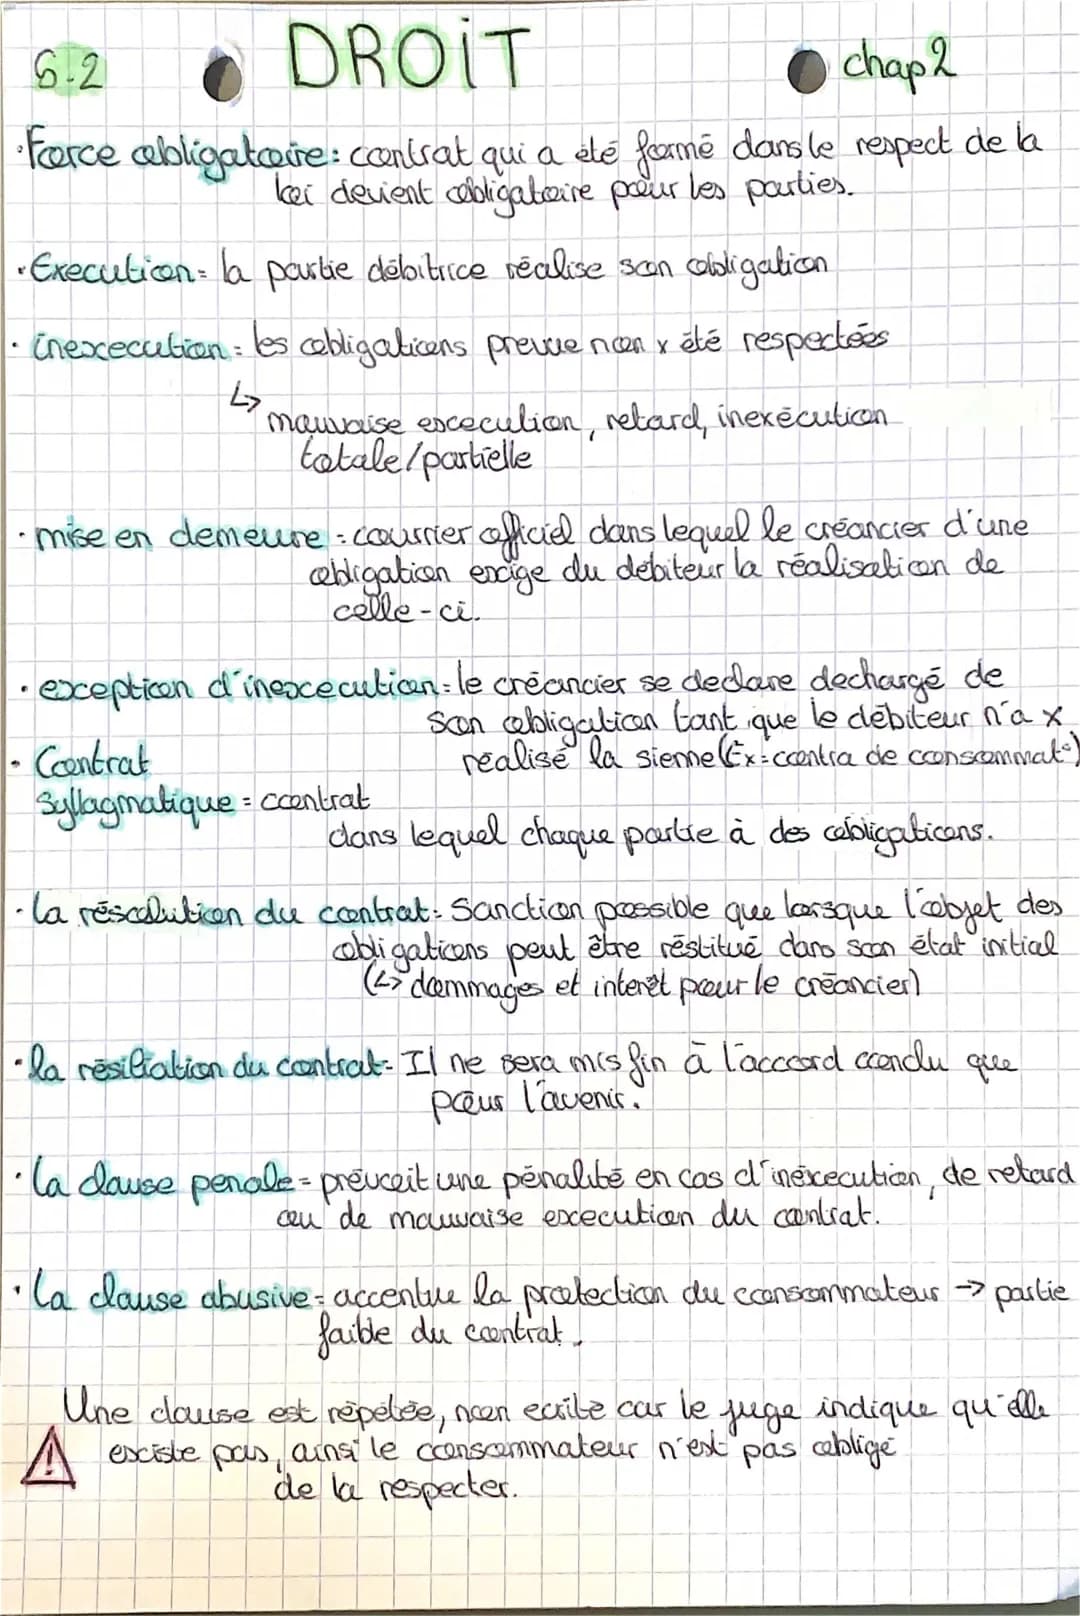 S.2 DROIT chap 2
· Force obligatoire : contrat qui a été formé dans le respect de la
loi devient obligatoire pour les parties.
· Execution = la partie débitrice réalise son obligation
· inexecution = les obligations prevue non x été respectées
↳ mauvaise execution, retard, inexécution
totale/partielle
· mise en demeure = courrier officiel dans lequel le créancier d'une
obligation exige du débiteur la réalisation de
celle-ci.
· exception d'inexecution = le créancier se declare dechargé de
son obligation tant que le débiteur n'a x
réalisé la sienne (Ex = contra de consommat°)
· Contrat
Syllagmatique = contrat
dans lequel chaque partie à des obligations.
· la résolution du contrat = Sanction possible que lorsque l'objet des
obligations peut être réstitué dans son état initial
(↳ dommages et interêt pour le créancier)
· la résiliation du contrat = Il ne sera mis fin à l'acccord conclu que
pour l'avenir.
· la clause penale = prévoit une pénalité en cas d'inéxecution, de retard
ou de mauvaise execution du contrat.
· la clause abusive = accentue la protection du consommateur → partie
faible du contrat.
Une clause est répétée, non ecrite car le juge indique qu'elle
⚠ existe pas, ainsi le consommateur n'est pas obligé
de la respecter.